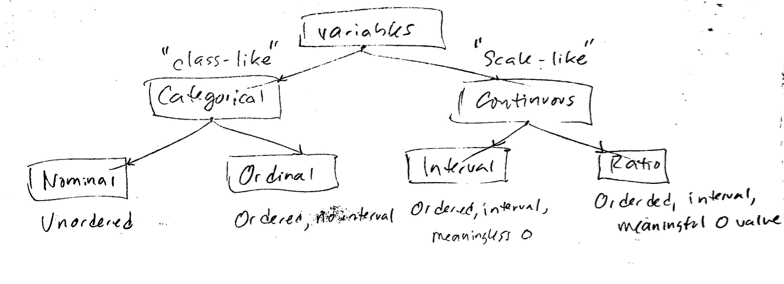 Variables
"class-like"
"Scale-like"
Categorical
Continuous
Nominal
Ordinal
Interval
Ratio
Unordered
Ordered, no interval
Ordered, interval,
meaningless 0
Orderded, interval,
meaningful 0 value